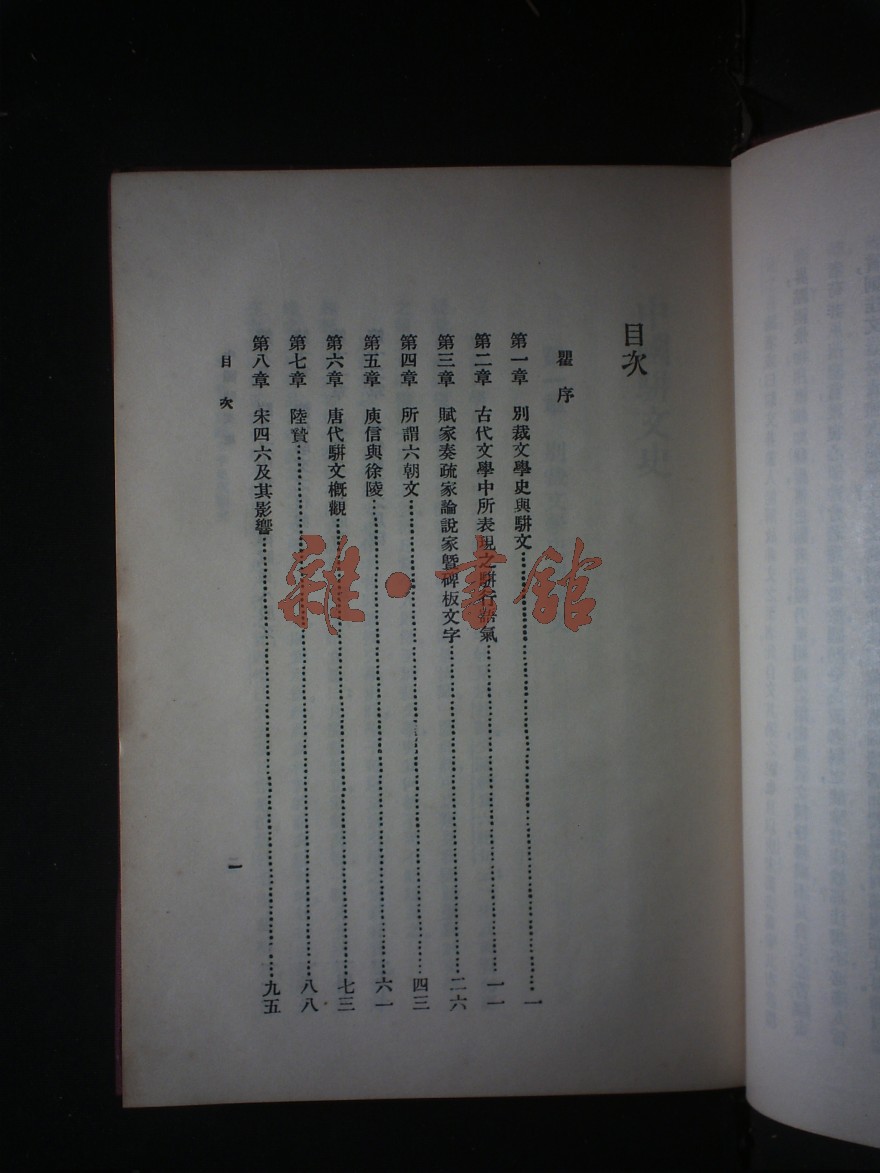 目次
瞿序
第一章 別裁文學史與駢文 一
第二章 古代文學中所表現之駢行語氣 一一
第三章 賦家奏疏家論說家暨碑板文字 二六
第四章 所謂六朝文 四三
第五章 庾信與徐陵 六一
第六章 唐代駢文概觀 七三
第七章 陸贄 八八
第八章 宋四六及其影響 九五
目次
二
雜·書館